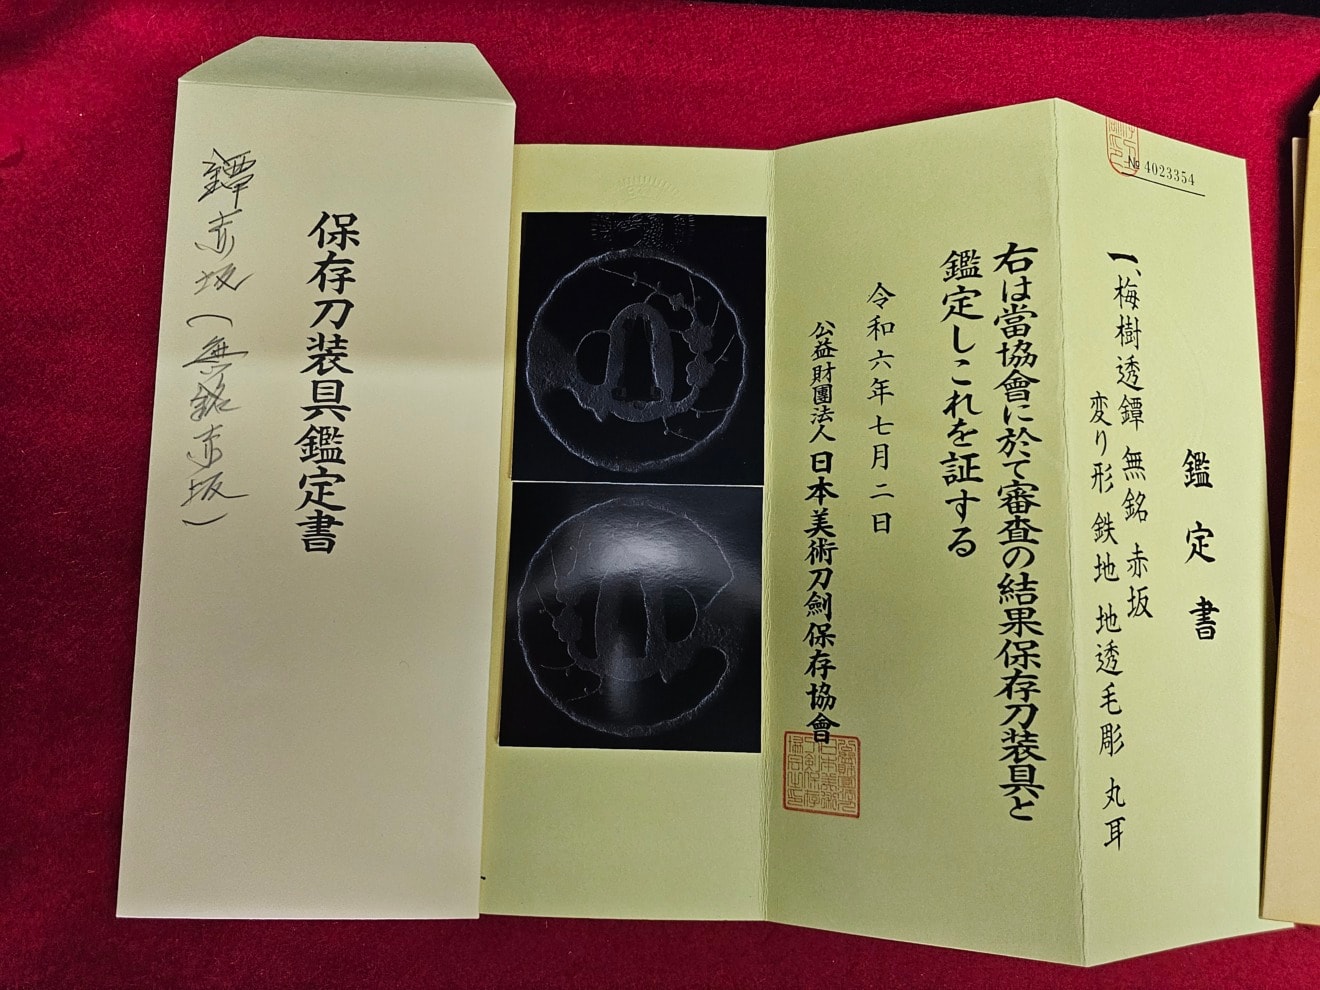 保存刀装具鑑定書
鐔赤坂(無銘赤坂)
№ 4023354
鑑定書
一、梅樹透鐔 無銘 赤坂
変り形 鉄地 地透毛彫 丸耳
右は當協會に於て審査の結果保存刀装具と
鑑定しこれを証する
令和六年七月二日
公益財團法人 日本美術刀劍保存協會